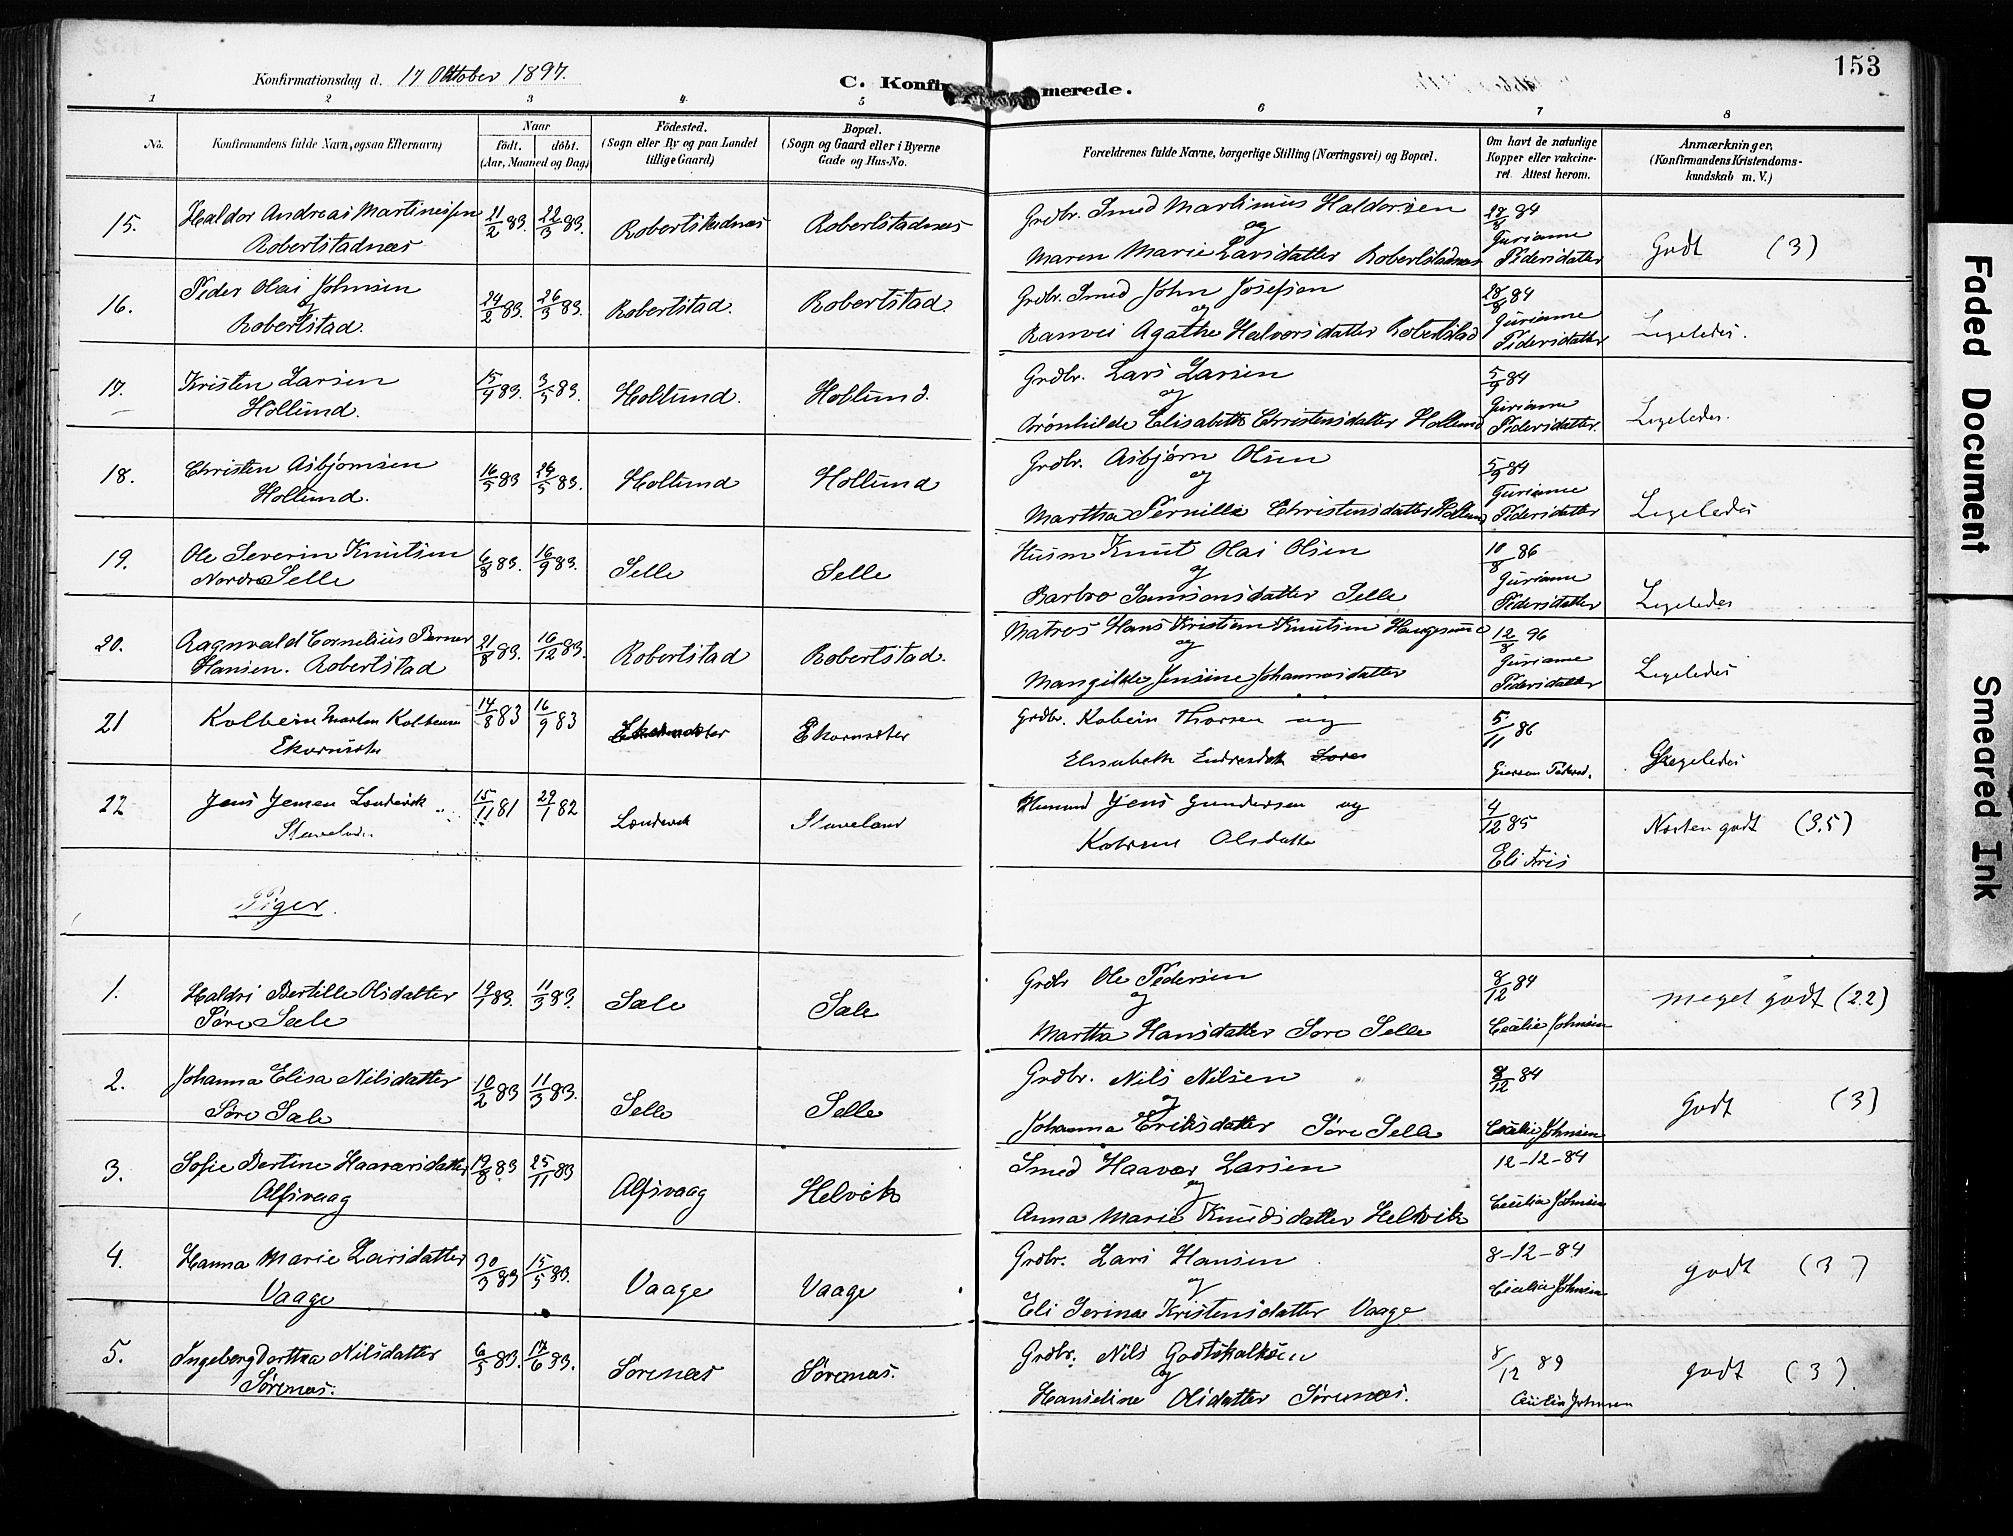 153
Konfirmationsdag d. 17 Oktober 1897.
C. Konfirmerede.
1 2 3 4 5 6 7 8
No.
Konfirmandens fulde Navn, ogsaa Efternavn)
Naar
födt. döbt.
(Aar, Maaned og Dag)
Födested.
(Sogn eller By og paa Landet
tillige Gaard)
Bopæl.
(Sogn og Gaard eller i Byerne
Gade og Hus-No.
Forældrenes fulde Navne, borgerlige Stilling (Næringsvei) og Bopæl.
Om havt de naturlige
Kopper eller vakcine-
ret. Attest herom.
Anmærkninger,
(Konfirmandens Kristendoms-
kundskab m. V.)
15. Haldor Andreas Martinessen
Robertstadnæs
21/2 83. 22/3 83. Robertstadnæs Robertstadnæs
Grdbr. Smed Martinius Haldorsen
og
Maren Marie Larsdatter Robertstadnæs
28/8 84
Gurianne
Pedersdatter
Godt (3)
16. Peder Olai Johnsen
Robertstad.
24/2 83. 26/3 83. Robertstad. Robertstad.
Grdbr. Smed John Josefson
og
Ranvei Agathe Halvorsdatter Robertstad
28/8 84
Gurianne
Pedersdatter
Ligeledes.
17. Kristen Larsen
Hollund.
15/4 83. 3/5 83. Hollund. Hollund.
Grdbr. Lars Larsen
og
Brønhilde Elisabeth Christensdatter Hollund
5/9 84
Gurianne
Pedersdatter.
Ligeledes.
18. Christen Asbjørnsen
Hollund.
16/5 83 24/5 83. Hollund Hollund
Grdbr. Asbjørn Olsen
og
Martha Pernille Christensdatter Hollund
5/9 84
Gurianne
Pedersdatter
Ligeledes
19. Ole Severin Knutsen
Nordre Selle
6/8 83. 16/9 83. Selle Selle
Husm Knut Olai Olsen
og
Barbro Samsonsdatter Selle
10/8 86
Gurianne
Pedersdatter
Ligeledes
20. Ragnvald Cornelius Berner
Hansen. Robertstad
21/8 83. 16/12 83. Robertstad Robertstad.
Matros Hans Kristian Knutsen Haugesund
og
Mangilde Jensine Johannesdatter
12/8 96
Gurianne
Pedersdatter
Ligeledes
21 Kolbein Martin Kolbeins
Ekornsæter
14/8 83 16/9 83 Ekornsæter
Grdbr. Kobein Thorsen og
Elisabeth Endresdatt
5/11 86
Ligeledes
22 Jens Jensen Londevik
Staveland
15/11 81 29/1 82 Londevik Staveland
Husmd Jens Gundersen og
Katrine Olsdatter
4/12 85
Eli Friis
Næsten godt (3.5)
Piger.
1. Haldri Bertille Olsdatter
Søre Sæle
19/1 83. 11/3 83. Sæle Sæle
Grdbr Ole Pedersen
og
Martha Hansdatter Søre Selle
8/12 84
Cecilie Johnsen
meget godt (2.2)
2. Johanna Elisa Nilsdatter
Søre Sæle
10/2 83 11/3 83. Selle Selle
Grdbr. Nils Nilsen
og
Johanna Eriksdatter Søre Selle
8/12 84
Cecilie Johnsen
Godt (3)
3. Sofie Bertine Haavarsdatter
Alfsvaag
19/8 83 25/11 83 Alfsvaag Helvik
Smed Haavar Larsen
og
Anna Marie Knudsdatter Helvik
12-12-84
Cecilie Johnsen
4. Hanna Marie Larsdatter
Vaage
30/3 83 15/5 83. Vaage Vaage
Grdbr. Lars Hansen
og
Eli Serina Kristensdatter Vaage
8-12-84
Cecilie Johnsen
godt (3)
5. Ingeborg Dorthea Nilsdatter
Sørenæs.
6/5 83. 17/6 83. Sørenæs Sørenæs.
Grdbr. Nils Godtskalksen
og
Hanseline Olsdatter Sørenæs.
8/12 89
Cecilia Johnsen
godt (3)
Faded Document
Smeared Ink